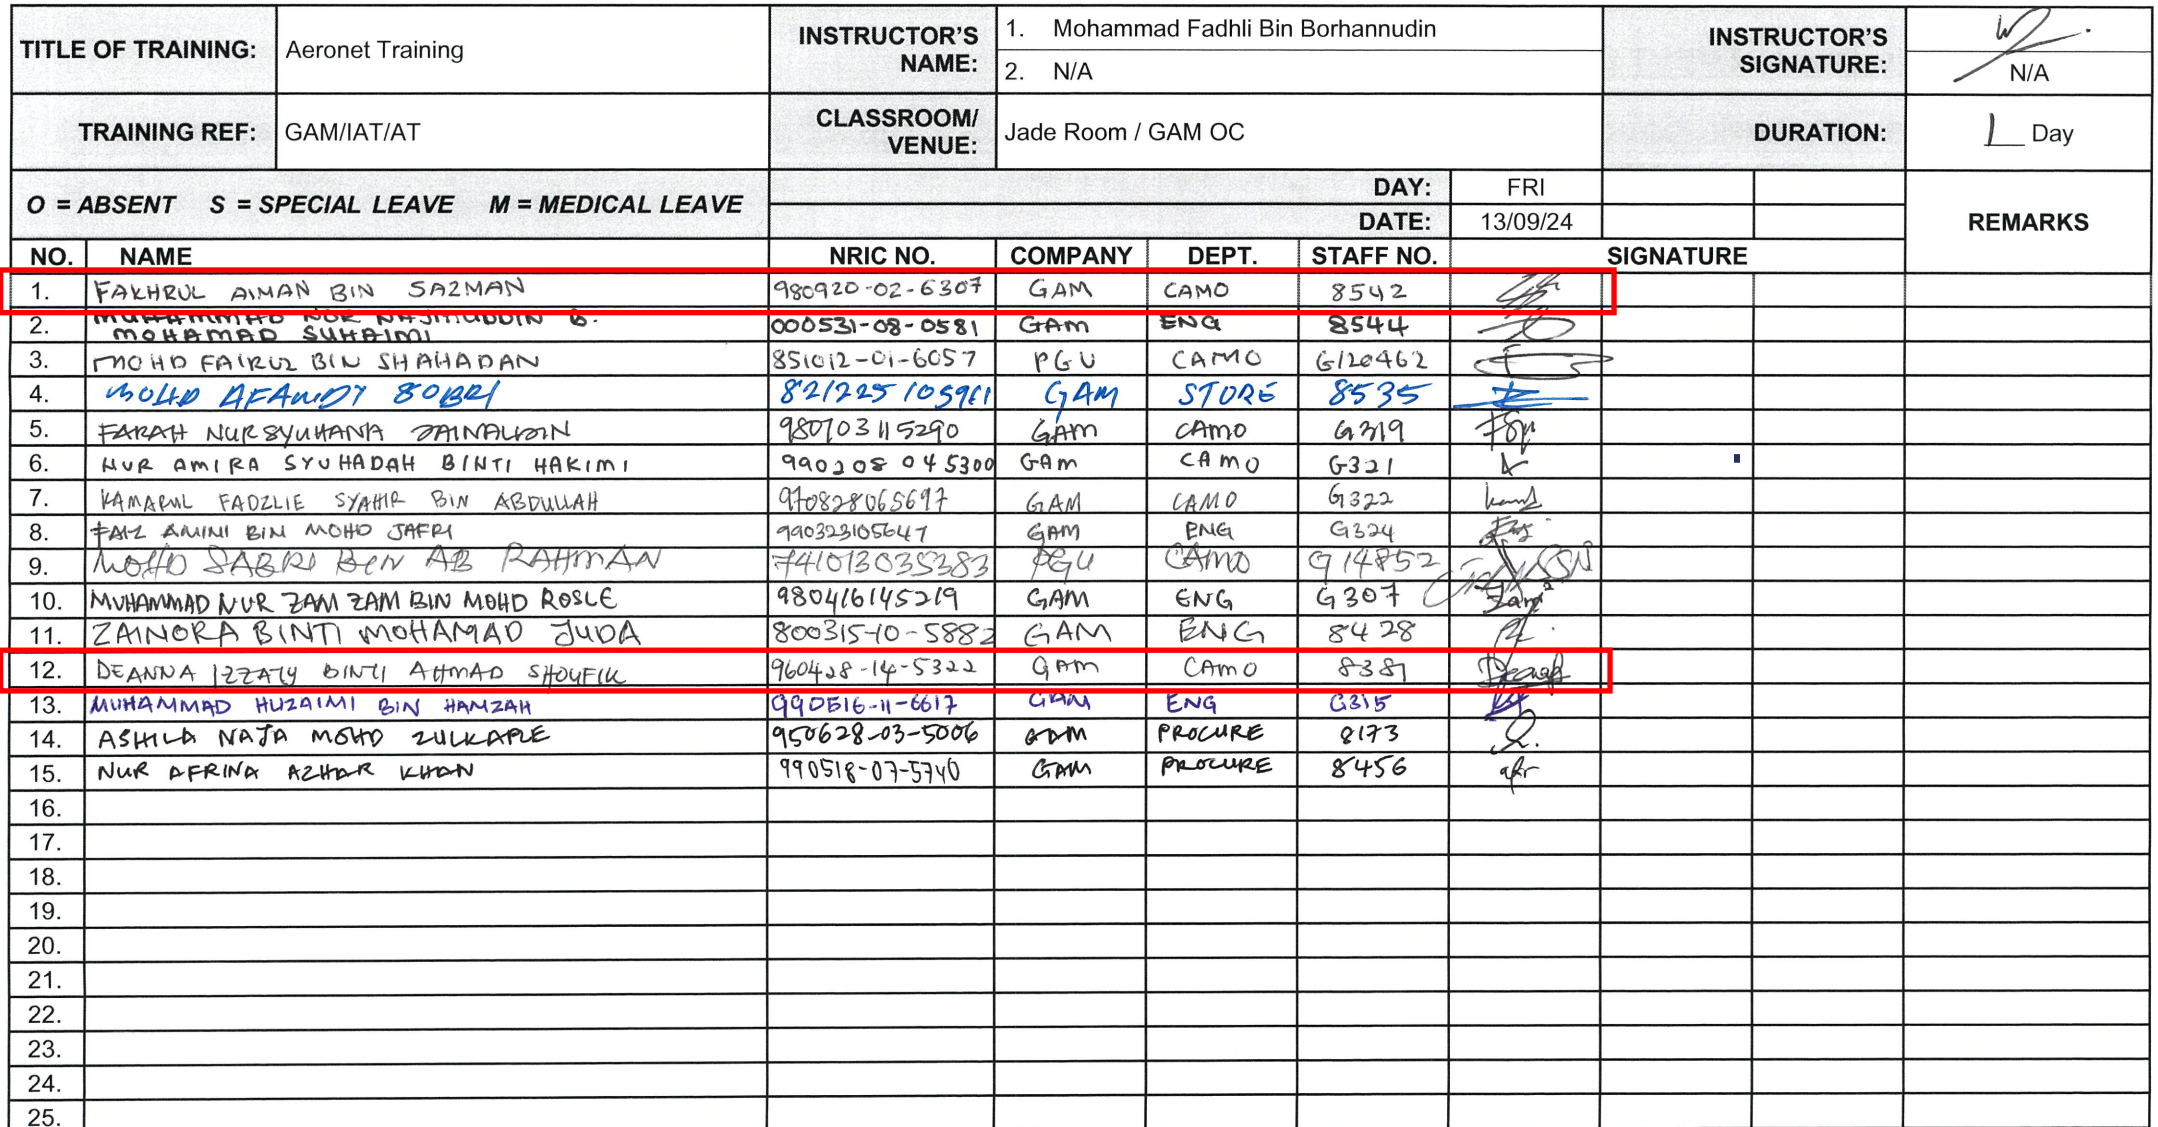 TITLE OF TRAINING: Aeronet Training INSTRUCTOR'S NAME: 1. Mohammad Fadhli Bin Borhannudin INSTRUCTOR'S SIGNATURE:
2. N/A N/A
TRAINING REF: GAM/IAT/AT CLASSROOM/ VENUE: Jade Room / GAM OC DURATION: 1 Day
O = ABSENT S = SPECIAL LEAVE M = MEDICAL LEAVE DAY: FRI REMARKS
DATE: 13/09/24
NO. NAME NRIC NO. COMPANY DEPT. STAFF NO. SIGNATURE
1. FAKHRUL AIMAN BIN SAZMAN 980920-02-6307 GAM CAMO 8542
2. MUHAMMAD NUR NAJMUDDIN B. MOHAMAD SUHAIMI 000531-08-0581 GAM ENG 8544
3. MOHD FAIRUZ BIN SHAHADAN 851012-01-6057 PGU CAMO G120462
4. MOHD AFANDY SOBRI GAM STORE 8535
5. FARAH NURSYUHANA ZAINALUDIN 980703115290 GAM CAMO G319
6. NUR AMIRA SYUHADAH BINTI HAKIMI 990208 045300 GAM CAMO G321
7. KAMARUL FADZLIE SYAHIR BIN ABDULLAH 970828065697 GAM CAMO G322
8. FAIZ AMINI BIN MOHD JAFRI 990323105647 GAM ENG G324
9. MOHD SABRI BIN AB RAHMAN 741013035383 PGU CAMO G14852
10. MUHAMMAD NUR ZAM ZAM BIN MOHD ROSLE 980416145219 GAM ENG G307
11. ZAINORA BINTI MOHAMAD JUDA 800315-10-5882 GAM ENG 8428
12. DEANNA IZZATY BINTI AHMAD SHOUFIK 960428-14-5322 GAM CAMO 8381
13. MUHAMMAD HUZAIMI BIN HAMZAH 990516-11-6617 GAM ENG G315
14. ASHILA NAJA MOHD ZULKAPLE 950628-03-5006 GAM PROCURE 8173
15. NUR AFRINA AZHAR KHAN 990518-07-5740 GAM PROCURE 8456
16.
17.
18.
19.
20.
21.
22.
23.
24.
25.